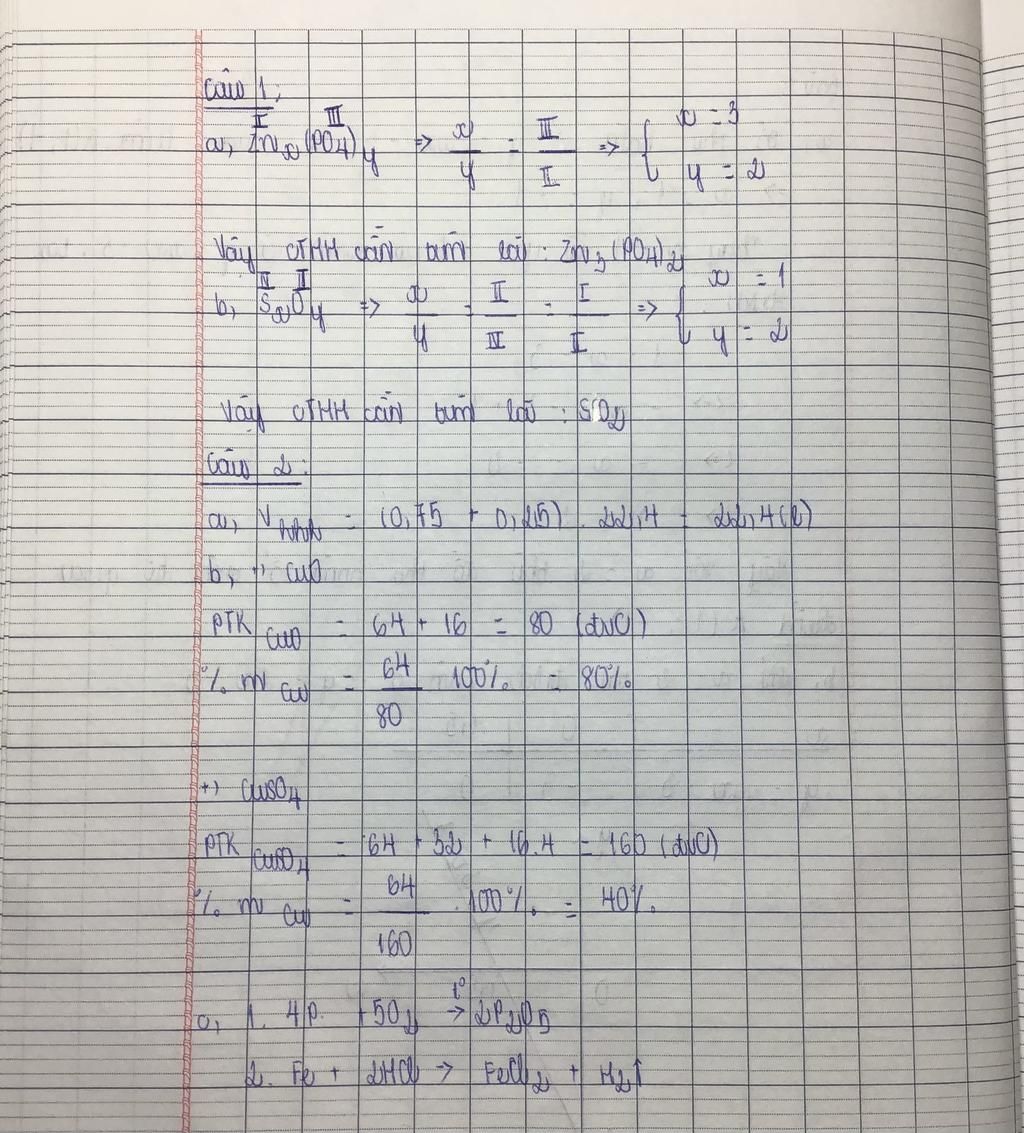 Câu 1:
II III
a, Znx(PO4)y => x/y = III/II => { x = 3
y = 2
Vậy CTHH cần tìm là : Zn3(PO4)2
IV II
b, SxOy => x/y = II/IV = I/II => { x = 1
y = 2
Vậy CTHH cần tìm là : SO2
Câu 2:
a, Vhhk = (0,75 + 0,25) . 22,4 = 22,4 (l)
b, +) CuO
PTK CuO = 64 + 16 = 80 (đvC)
% m Cu = 64/80 . 100% = 80%
+) CuSO4
PTK CuSO4 = 64 + 32 + 16.4 = 160 (đvC)
% m Cu = 64/160 . 100% = 40%
c, 1. 4P + 5O2 t° -> 2P2O5
2. Fe + 2HCl -> FeCl2 + H2↑